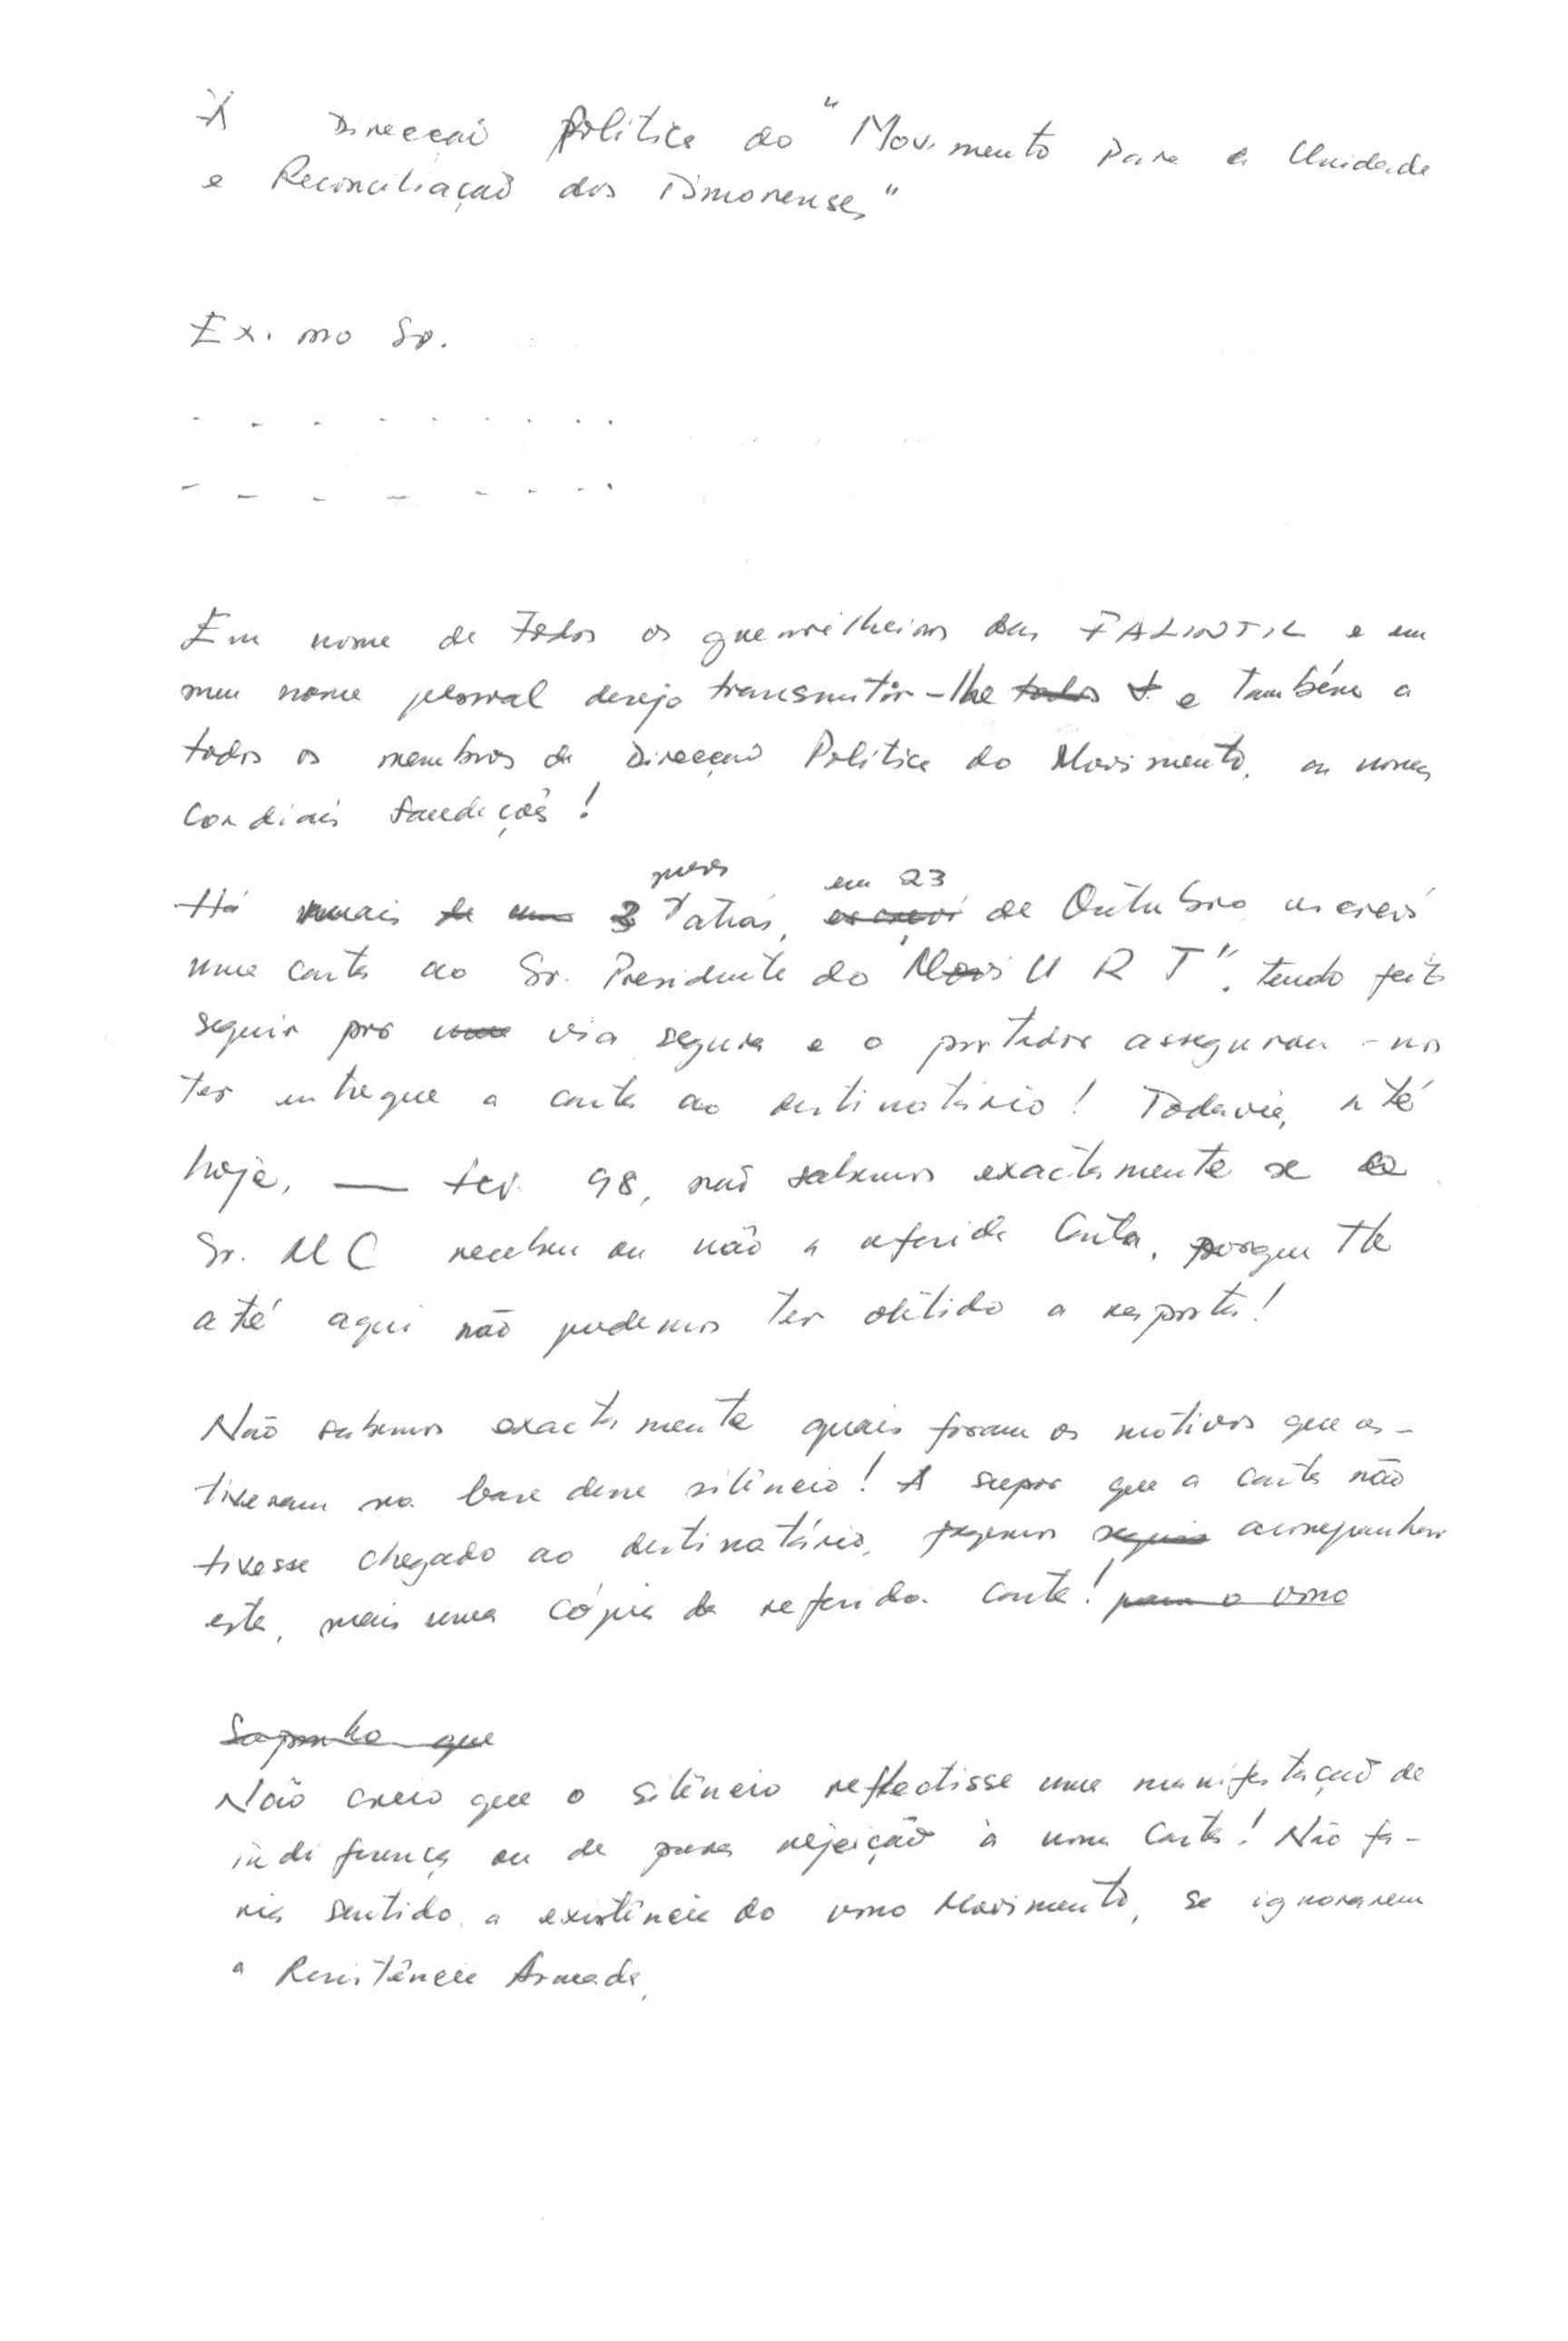 À Direcção Política do "Movimento para a Unidade
e Reconciliação dos Timorenses"
Ex. mo Sr.
. . . . . . . . .
- - - - - - - . .
Em nome de todos os guerrilheiros das FALINTIL e em
meu nome pessoal desejo transmitir-lhe todos e também a
todos os membros da Direcção Política do Movimento, as nossas
cordiais saudações!
meses em 23
Há mais de 3 atrás, escrevi de Outubro escrevi
uma carta ao Sr. Presidente do "Movi U R T", tendo feito
seguir por uma via segura e o portador assegurou-nos
ter entregue a carta ao destinatário! Todavia, até
hoje, — fev. 98, não sabemos exactamente se o
Sr. MC recebeu ou não a referida Carta, porque
até aqui não podemos ter obtido a resposta!
Não sabemos exactamente quais foram os motivos que es-
tiveram na base desse silêncio! A supor que a carta não
tivesse chegado ao destinatário, fazemos seguir acompanhar
esta, mais uma cópia da referida carta! para o vosso
Suponho que
Não creio que o silêncio reflectisse uma manifestação de
indiferença ou de pura rejeição à nossa Carta! Não fa-
ria sentido a existência do vosso Movimento, se ignorarem
a Resistência Armada,